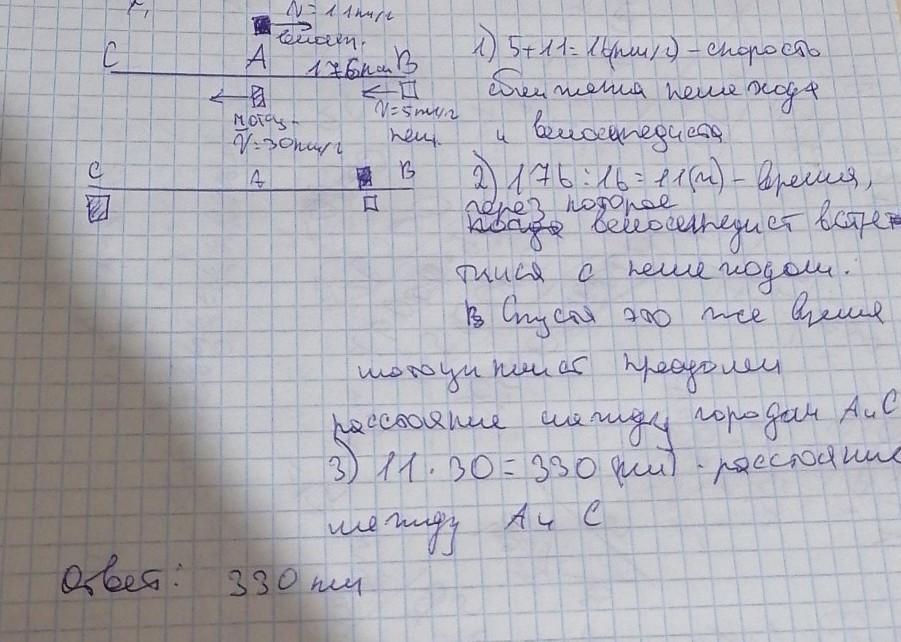 V=11км/ч
велос.
C A 176км B
мотоц.
V=30км/ч
V=5км/ч
пеш.
C A B
1) 5+11=16(км/ч) - скорость
сближения пешехода
и велосипедиста
2) 176:16=11(ч) - время,
через которое
велосипедист встре-
тился с пешеходом.
В Спустя это же время
мотоциклист преодолел
расстояние между городами А и С
3) 11·30=330(км) - расстояние
между А и С
Ответ: 330 км